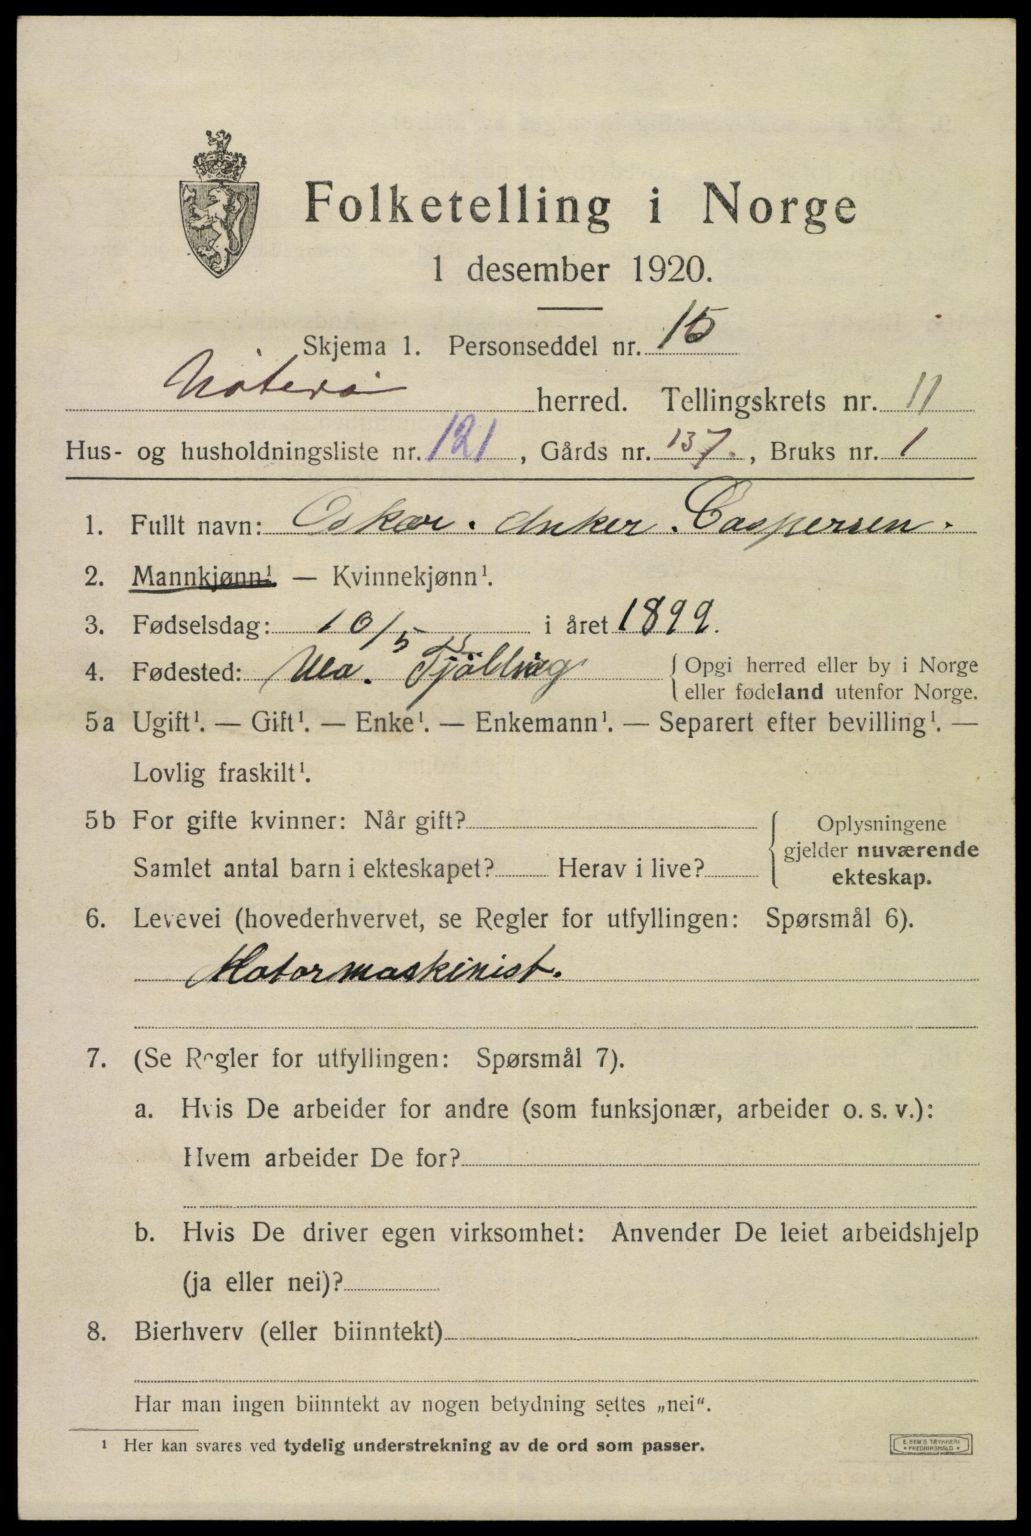 Folketelling i Norge
1 desember 1920.
Skjema 1. Personseddel nr. 15
Nøterø herred. Tellingskrets nr. 11
Hus- og husholdningsliste nr. 121, Gårds nr. 137., Bruks nr. 1
1. Fullt navn: Oskar. Anker. Caspersen.
2. Mannkjønn¹. — Kvinnekjønn¹.
3. Fødselsdag: 10/5 i året 1899.
4. Fødested: Ula. Tjölling { Opgi herred eller by i Norge
eller fødeland utenfor Norge.
5a Ugift¹. — Gift¹. — Enke¹. — Enkemann¹. — Separert efter bevilling¹. —
Lovlig fraskilt¹.
5b For gifte kvinner: Når gift?
Samlet antal barn i ekteskapet? Herav i live?
{ Oplysningene
gjelder nuværende
ekteskap.
6. Levevei (hovederhvervet, se Regler for utfyllingen: Spørsmål 6).
Motormaskinist.
7. (Se Regler for utfyllingen: Spørsmål 7).
a. Hvis De arbeider for andre (som funksjonær, arbeider o. s. v.):
Hvem arbeider De for?
b. Hvis De driver egen virksomhet: Anvender De leiet arbeidshjelp
(ja eller nei)?
8. Bierhverv (eller biinntekt)
Har man ingen biinntekt av nogen betydning settes „nei“.
¹ Her kan svares ved tydelig understrekning av de ord som passer.
E. SEM'S TRYKKERI
FREDRIKSHALD